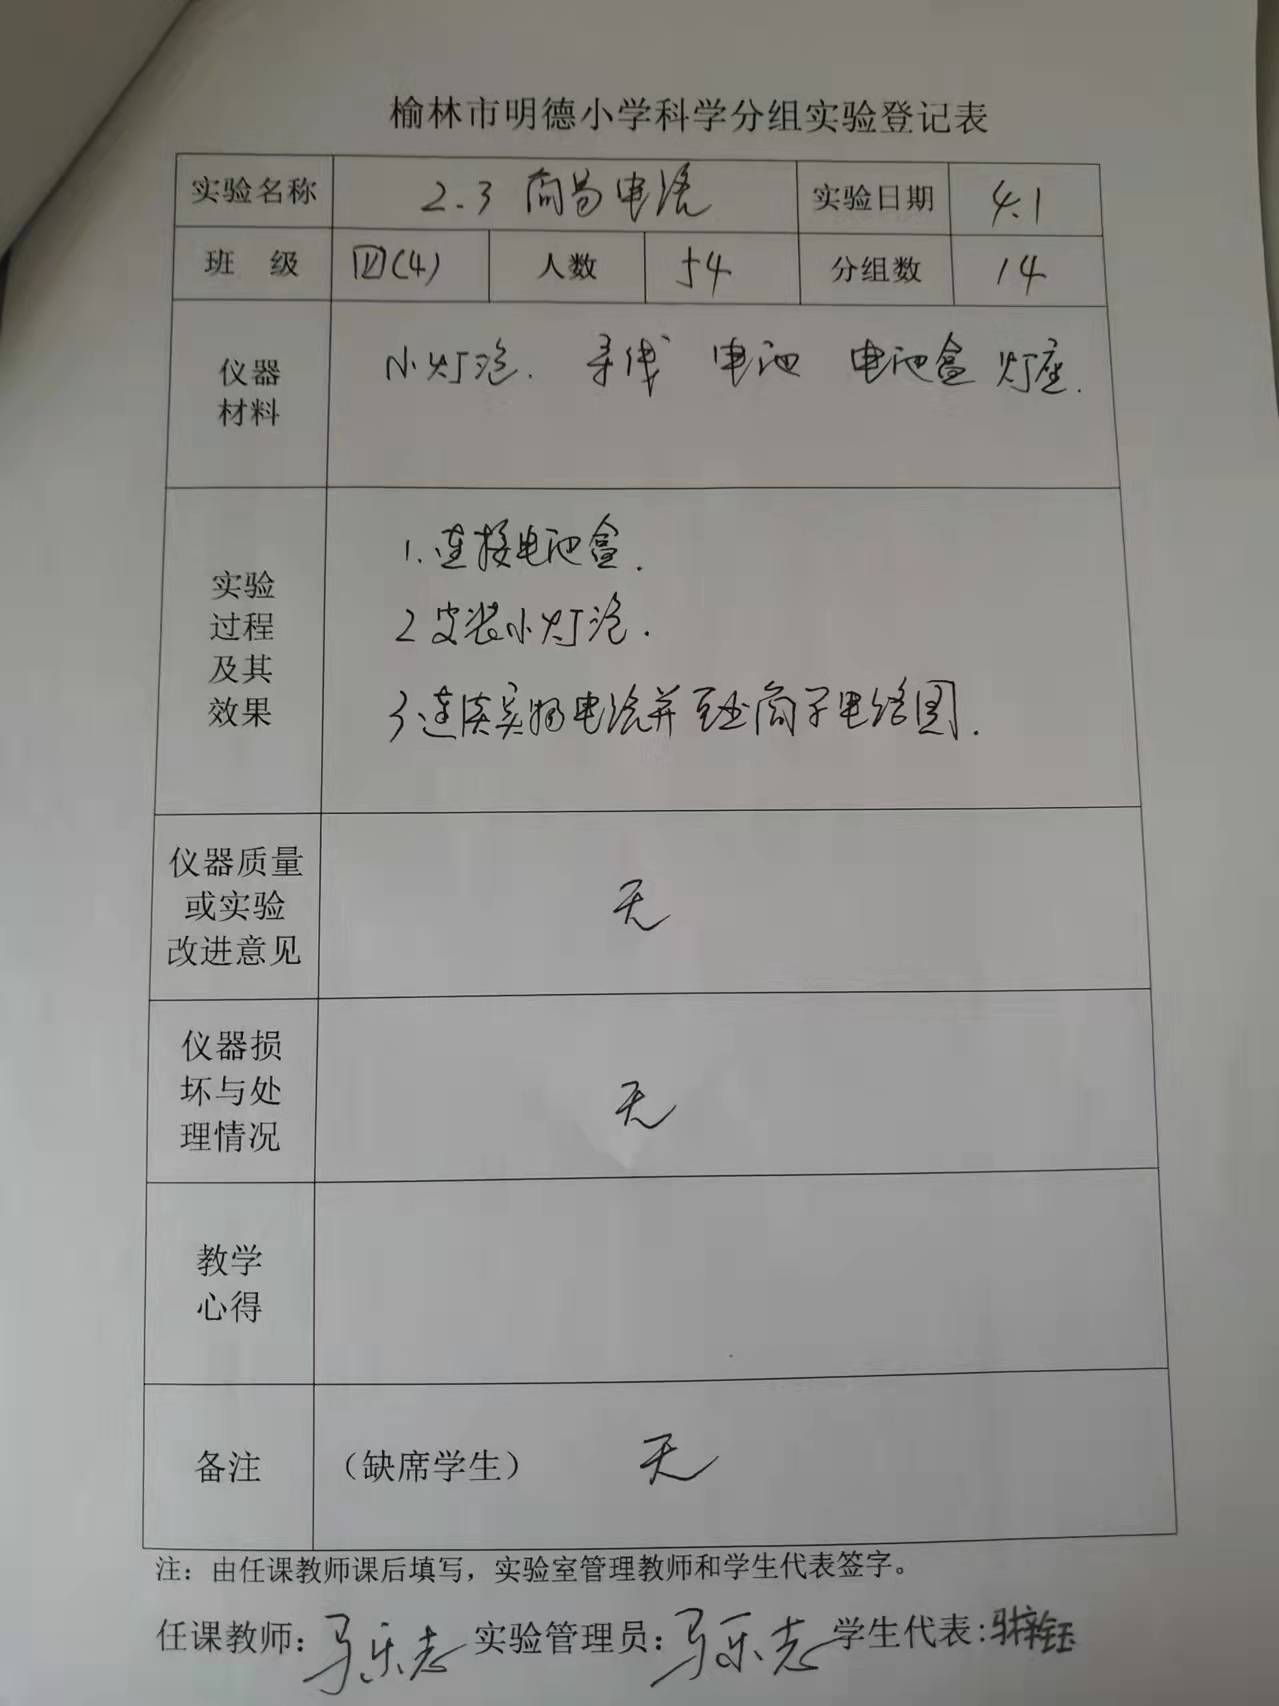 榆林市明德小学科学分组实验登记表
实验名称 2.3 简易电路 实验日期 4.1
班 级 四(4) 人数 54 分组数 14
仪器 小灯泡. 导线 电池 电池盒 灯座.
材料
1.连接电池盒.
实验
过程 2 安装小灯泡.
及其
效果 3.连接实物电路并画出简易电路图.
仪器质量
或实验 无
改进意见
仪器损
坏与处 无
理情况
教学
心得
备注 (缺席学生) 无
注：由任课教师课后填写，实验室管理教师和学生代表签字。
任课教师: 马乐志 实验管理员: 马乐志 学生代表: